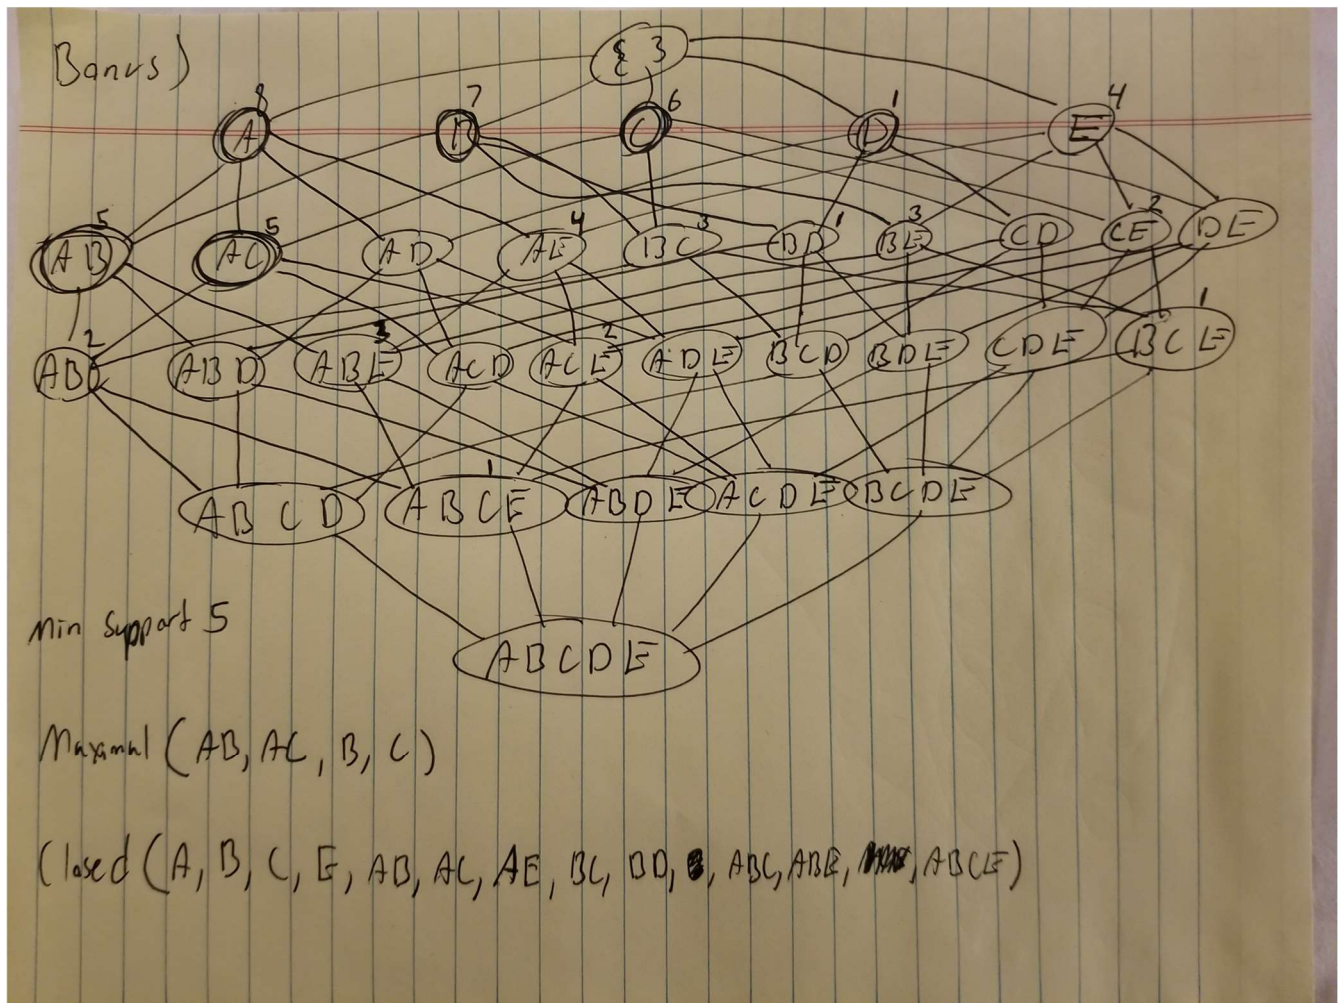 Bonus)
{ }
8 7 6 1 4
A B C D E
5 5 4 3 1 3 2
AB AC AD AE BC BD BE CD CE DE
2 3 2 1
AB ABD ABE ACD ACE ADE BCD BDE CDE BCE
1
ABCD ABCE ABDE ACDE BCDE
ABCDE
Min support 5
Maximal (AB, AC, B, C)
Closed (A, B, C, E, AB, AC, AE, BC, BD, , ABC, ABE, , ABCE)